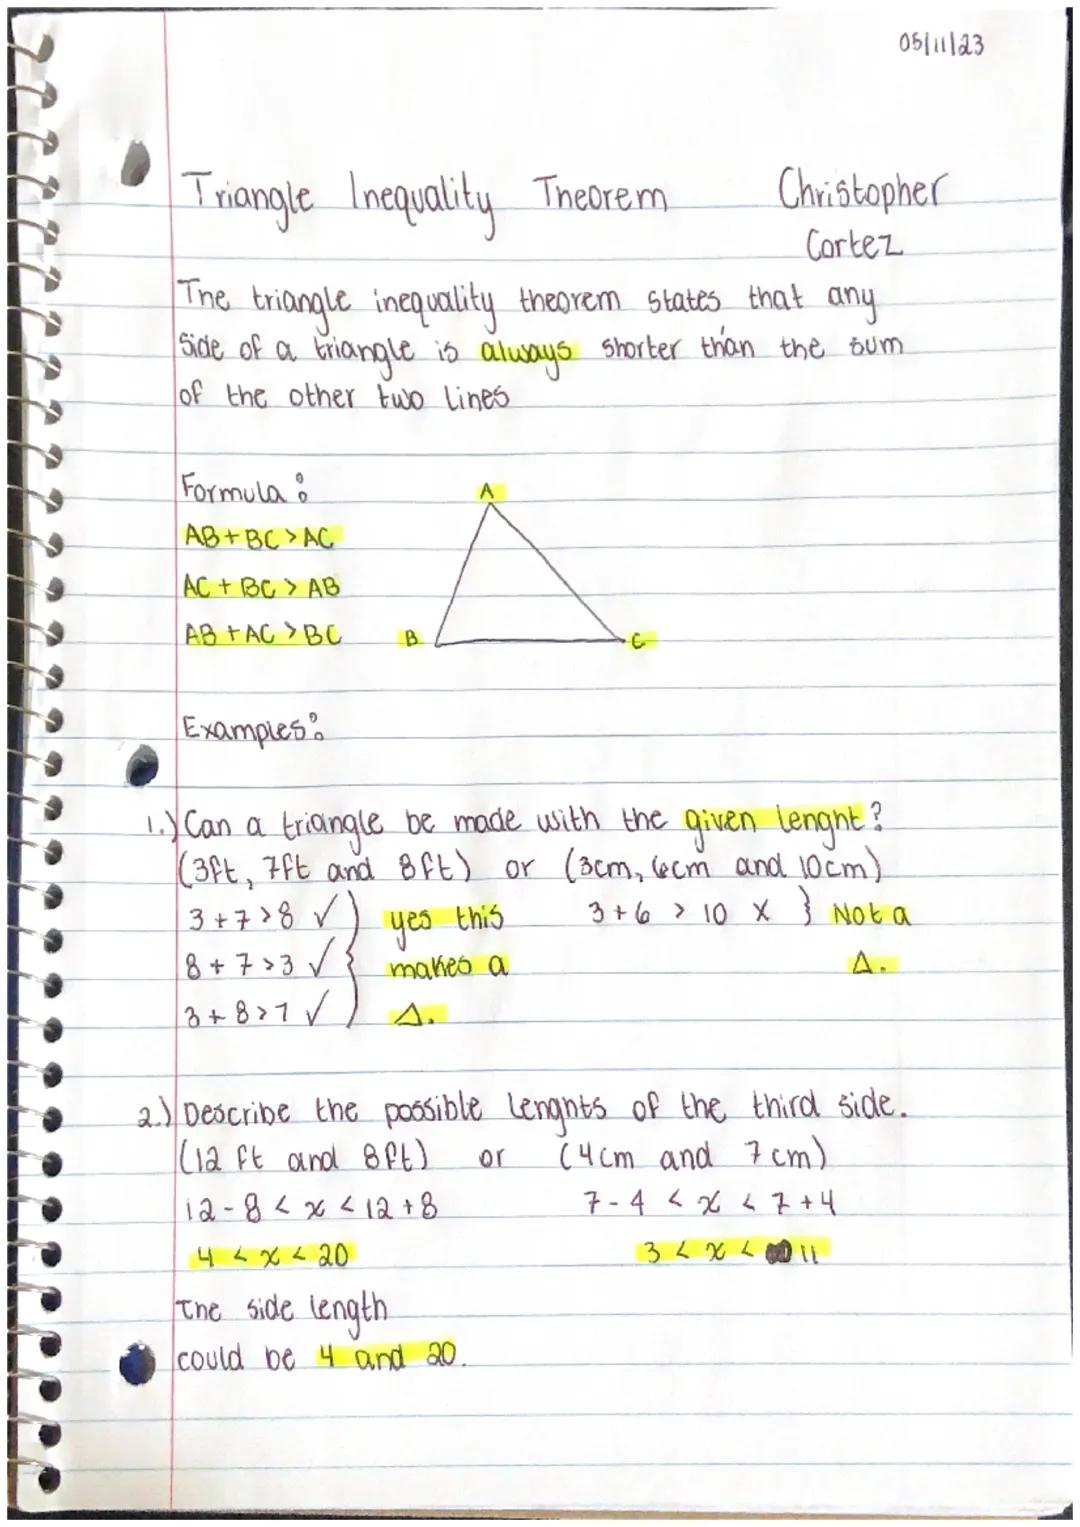 05/11/23
Triangle Inequality Theorem Christopher
Cortez
The triangle inequality theorem states that any
side of a triangle is always shorter than the sum
of the other two lines
Formula:
A
AB + BC > AC
AC + BC > AB
AB + AC > BC
B C
Examples:
1.) Can a triangle be made with the given lenght?
(3ft, 7ft and 8ft) or (3cm, 6cm and 10cm)
3 + 7 > 8 ✓ } yes this 3 + 6 > 10 X } Not a
8 + 7 > 3 ✓ } makes a Δ.
3 + 8 > 7 ✓ } Δ.
2.) Describe the possible lenghts of the third side.
(12 ft and 8ft) or (4cm and 7cm)
12 - 8 < x < 12 + 8 7 - 4 < x < 7 + 4
4 < x < 20 3 < x < 11
The side length
could be 4 and 20.